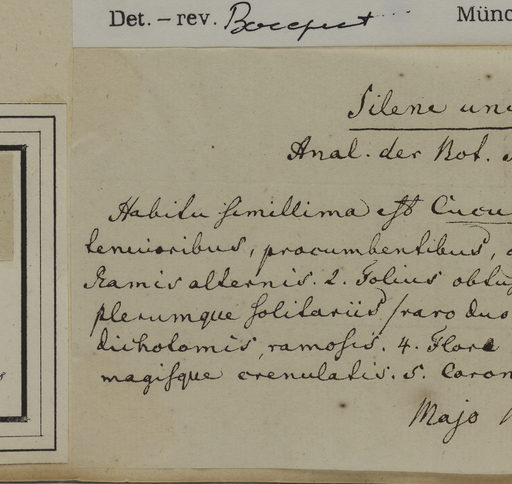 Det. – rev. Bocquet Münc
Silene un
Anal. der Bot.
Habitu simillima est Cucu
tenuioribus, procumbentibus,
Ramis alternis. 2. Foliis obtus
plerumque solitariis / raro duo
dichotomis, ramosis. 4. Flore
magisque crenulatis. 5. Coron
Majo